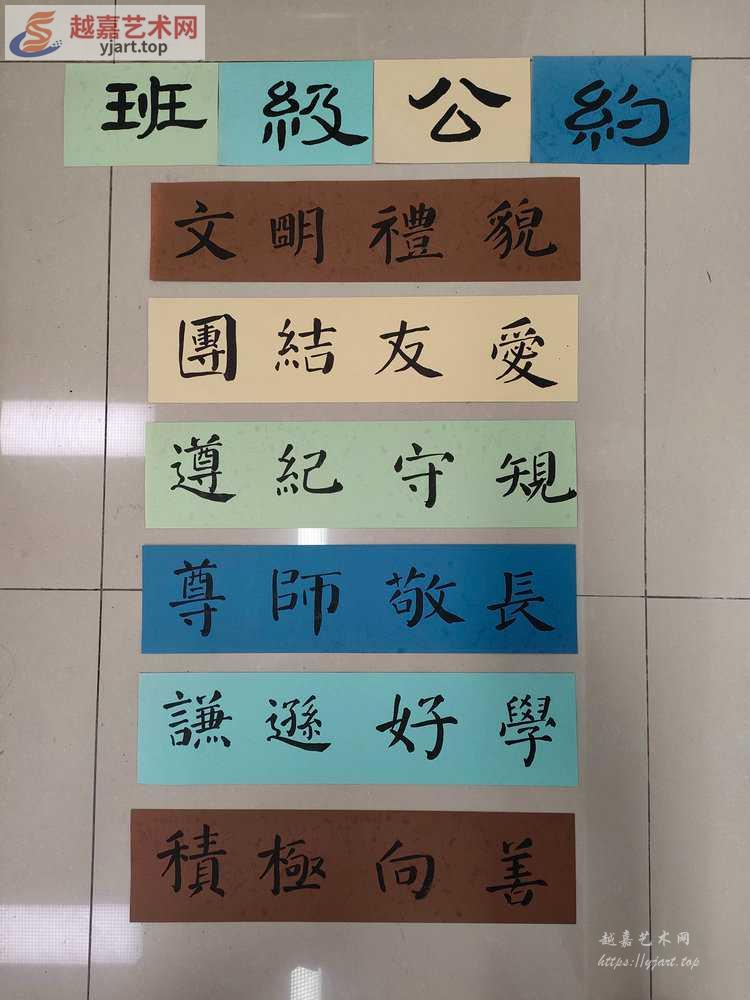 越嘉艺术网
yjart.top
班級公約
文明禮貌
團結友愛
遵紀守規
尊師敬長
謙遜好學
積極向善
越嘉艺术网
https://yjart.top